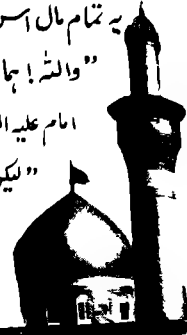 یہ تمام مال اس
”واللہ! ہما
امام علیہ ال
”لیکن